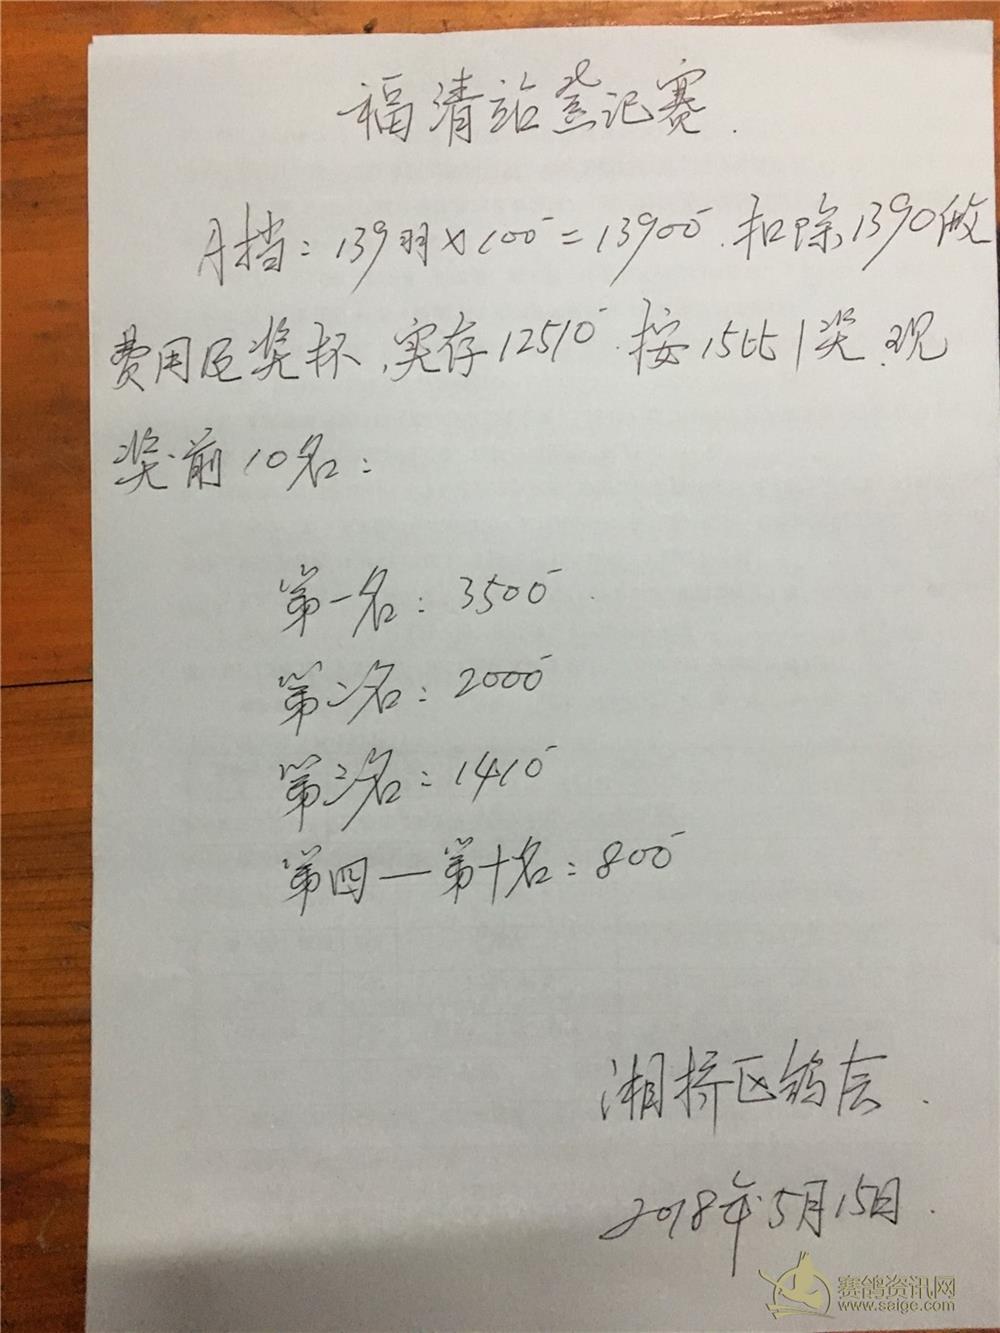 福清站登记赛.
A挡：139羽×100=13900.扣除1390做
费用及奖杯,实存12510.按15比1奖.现
奖前10名：
第一名：3500
第二名：2000
第三名：1410
第四—第十名：800
湘桥区鸽会.
2018年5月15日.
赛鸽资讯网
www.saige.com